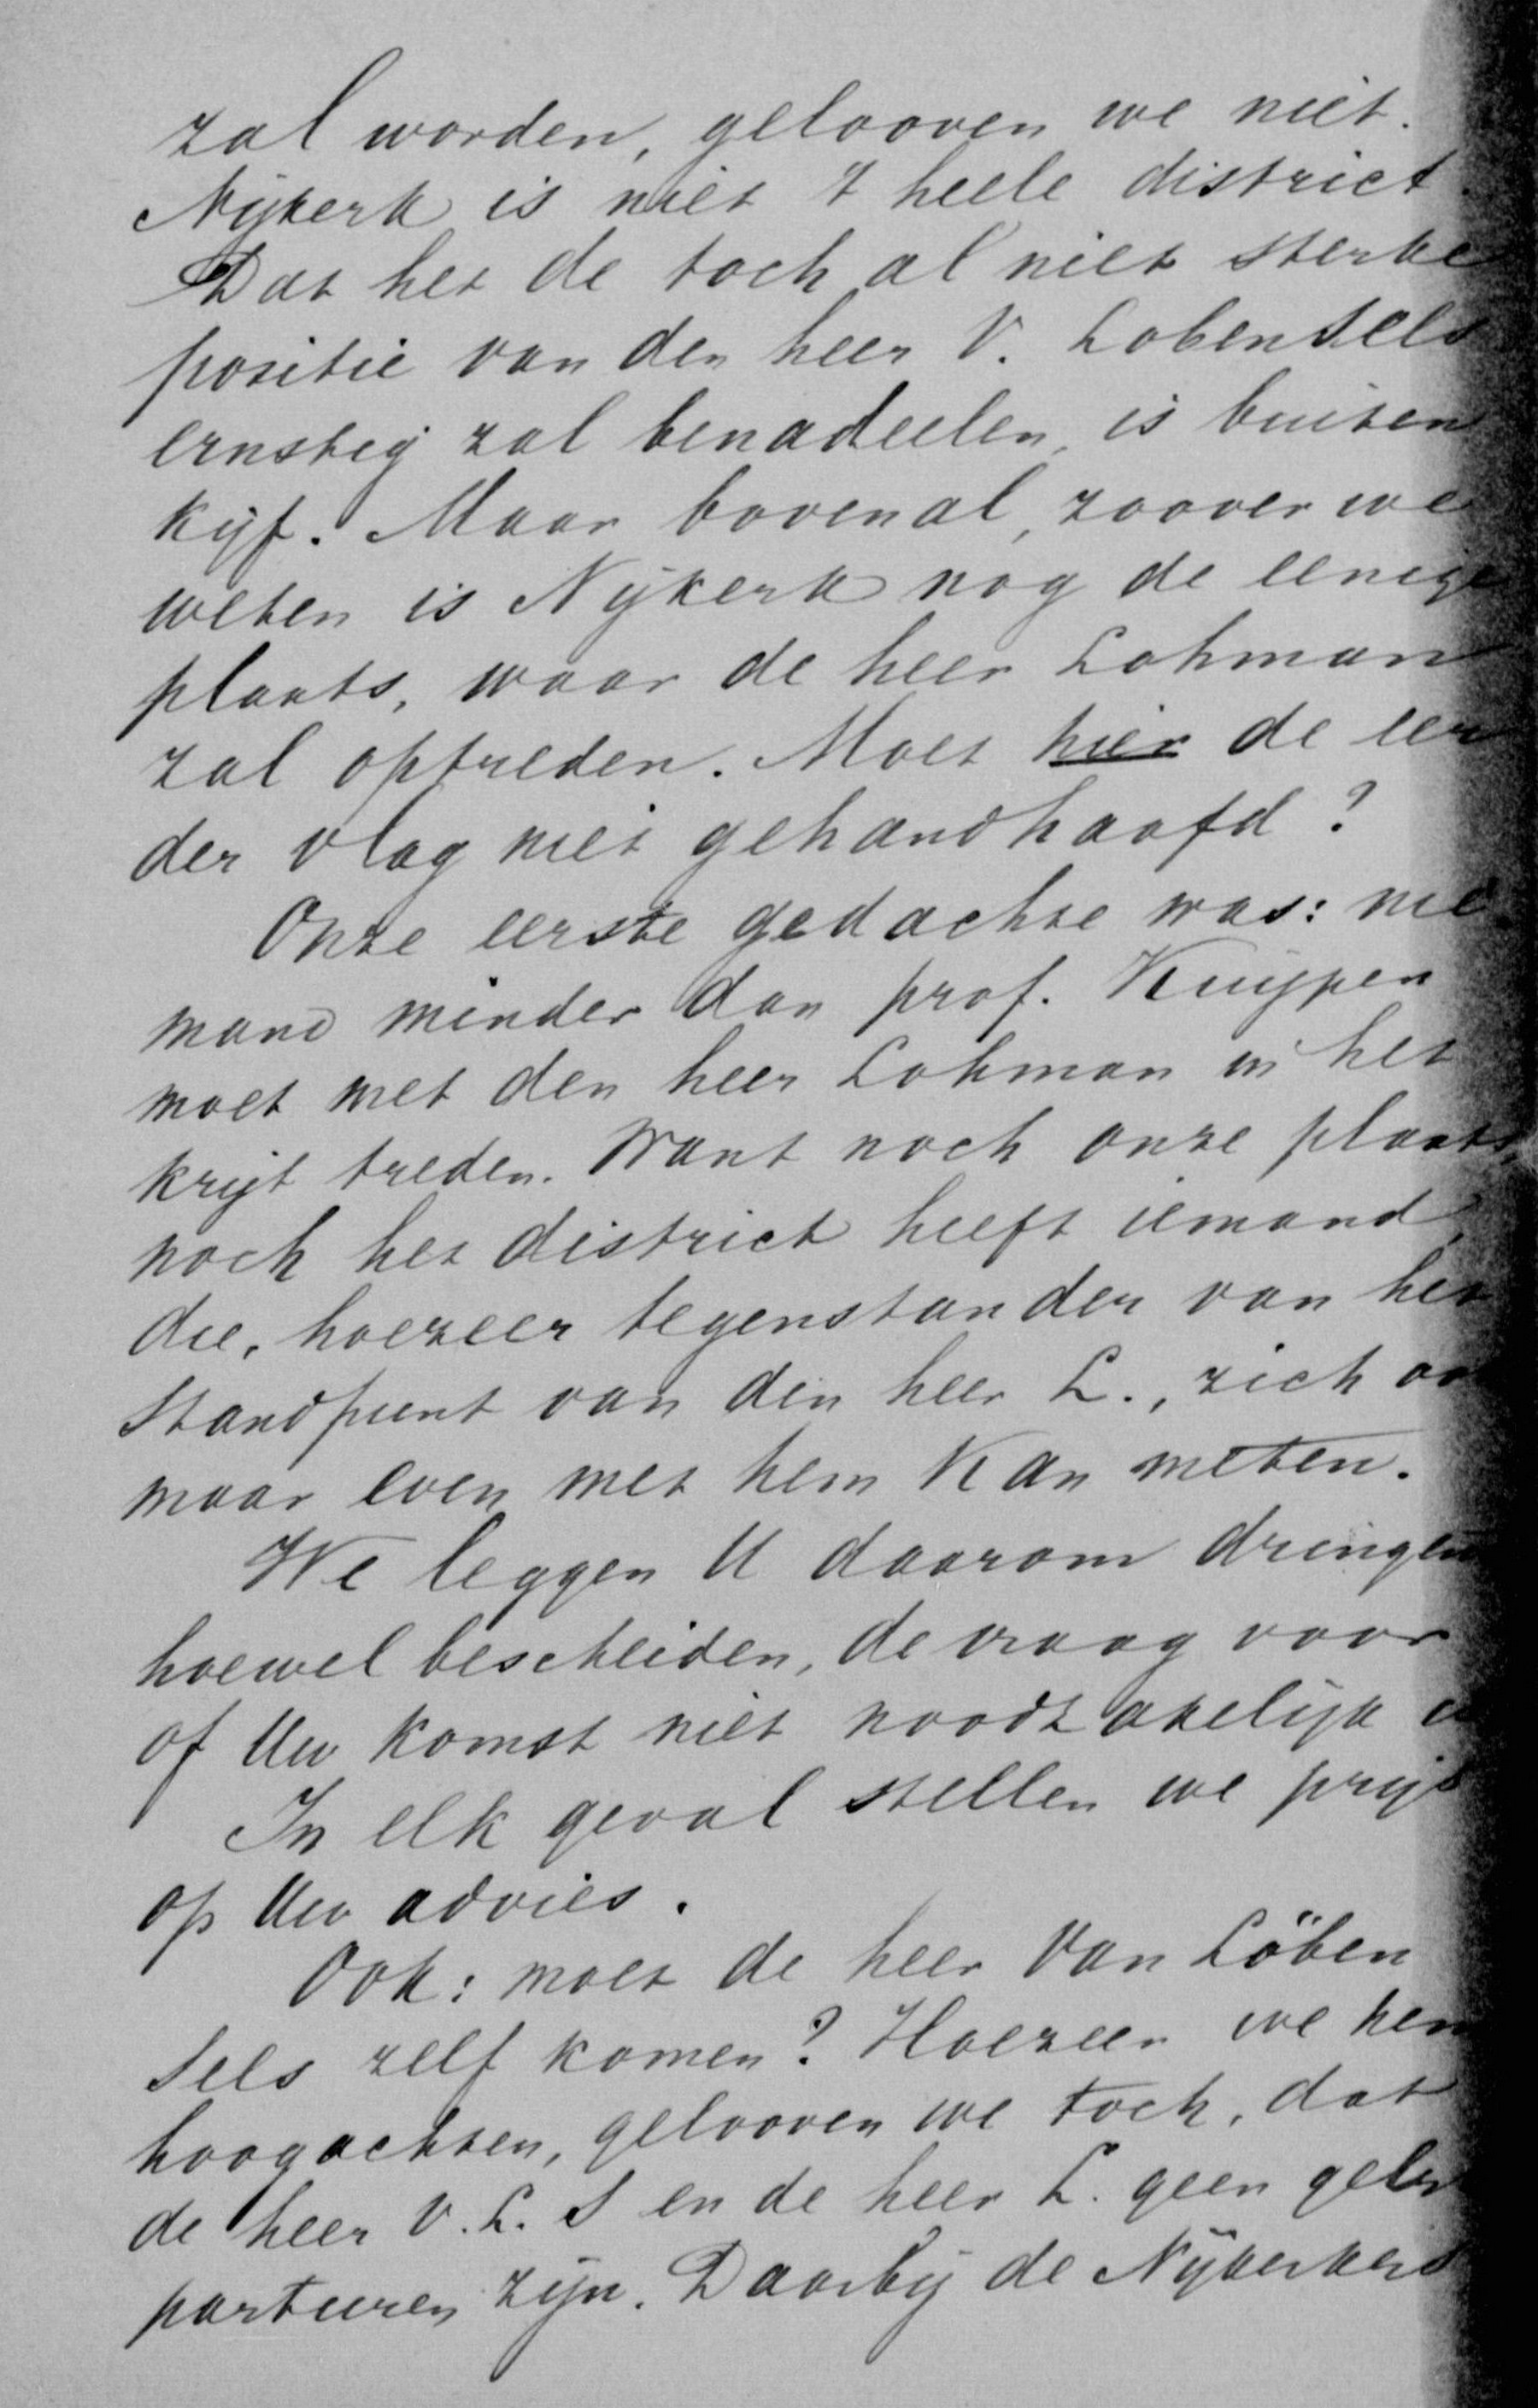 zal worden, gelooven we niet.
Nijkerk is niet 't heele district.
Dat het de toch al niet sterke
positie van den heer V. Lobensels
ernstig zal benadeelen, is buiten
kijf. Maar bovenal, zoover we
weten is Nijkerk nog de eenige
plaats, waar de heer Lohman
zal optreden. Moet hier de eer
der vlag niet gehandhaafd?
Onze eerste gedachte was: nie
mand minder dan prof. Kuijper
moet met den heer Lohman in het
krijt treden. Want noch onze plaats,
noch het district heeft iemand,
die, hoezeer tegenstander van het
standpunt van den heer L., zich oo
maar even met hem kan meten.
We leggen U daarom dringen
hoewel bescheiden, de vraag voor
of Uw komst niet noodzakelijk i
In elk geval stellen we prijs
op Uw advies.
Ook: moet de heer Van Löben
Sels zelf komen? Hoezeer we hem
hoogachten, gelooven we toch, dat
de heer V. L. S en de heer L. geen gelij
parturen zijn. Daarbij de Nijkerkers